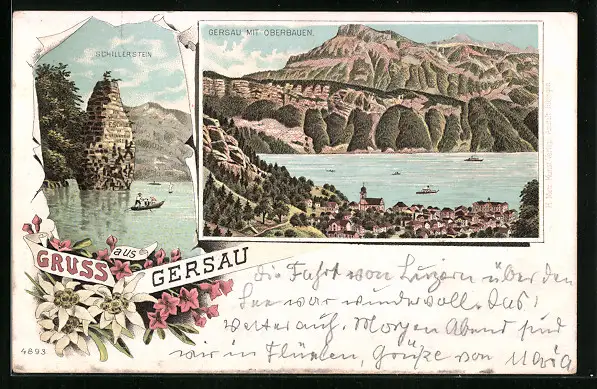 SCHILLERSTEIN
GERSAU MIT OBERBAUEN.
GRUSS aus GERSAU
die Fahrt von Luzern über den
See war wundervoll. Das
Wetter auch. Morgen Abend sind
wir in Flüelen, Grüße von Maria
4893